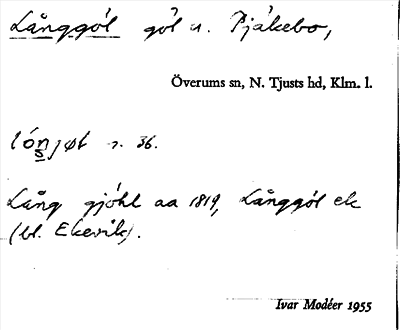 Långgöl göl u. Pjäkebo,
Överums sn, N. Tjusts hd, Klm. l.
lóŋjøt s. 36.
Lång gjöhl aa 1819, Långgöl ek
(bl. Ekevik).
Ivar Modéer 1955